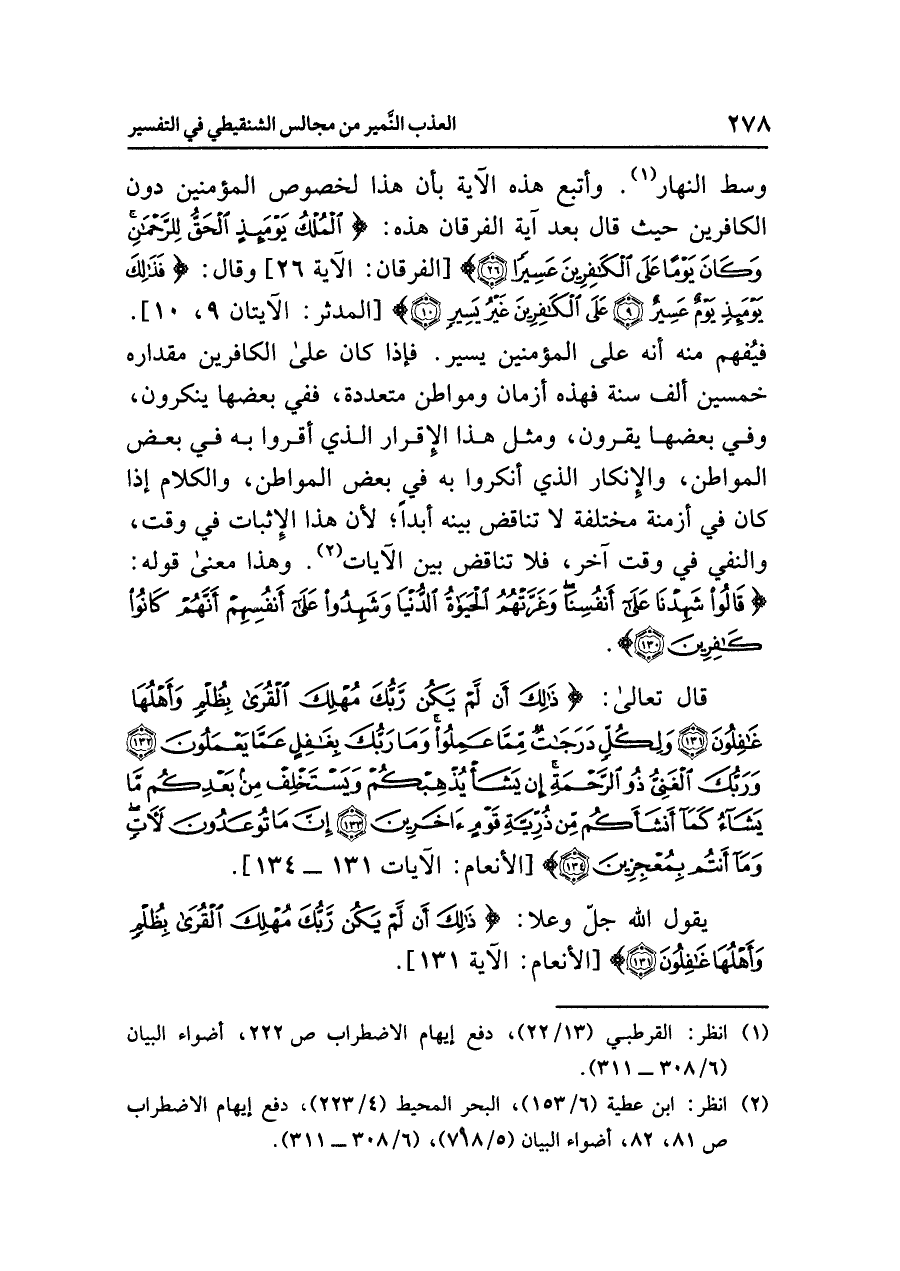 ٢٧٨ العذب النَّمير من مجالس الشنقيطي في التفسير
وسط النهار(١). وأتبع هذه الآية بأن هذا لخصوص المؤمنين دون
الكافرين حيث قال بعد آية الفرقان هذه: ﴿ ٱلْمُلْكُ يَوْمَئِذٍ ٱلْحَقُّ لِلرَّحْمَٰنِۚ
وَكَانَ يَوْمًا عَلَى ٱلْكَٰفِرِينَ عَسِيرًا ٢٦﴾ [الفرقان: الآية ٢٦] وقال: ﴿ فَذَٰلِكَ
يَوْمَئِذٍ يَوْمٌ عَسِيرٌ ٩ عَلَى ٱلْكَٰفِرِينَ غَيْرُ يَسِيرٍ ١٠﴾ [المدثر: الآيتان ٩، ١٠].
فيُفهم منه أنه على المؤمنين يسير. فإذا كان علىٰ الكافرين مقداره
خمسين ألف سنة فهذه أزمان ومواطن متعددة، ففي بعضها ينكرون،
وفي بعضها يقرون، ومثل هذا الإقرار الذي أقروا به في بعض
المواطن، والإنكار الذي أنكروا به في بعض المواطن، والكلام إذا
كان في أزمنة مختلفة لا تناقض بينه أبداً؛ لأن هذا الإثبات في وقت،
والنفي في وقت آخر، فلا تناقض بين الآيات(٢). وهذا معنىٰ قوله:
﴿ قَالُوا۟ شَهِدْنَا عَلَىٰٓ أَنفُسِنَاۖ وَغَرَّتْهُمُ ٱلْحَيَوٰةُ ٱلدُّنْيَا وَشَهِدُوا۟ عَلَىٰٓ أَنفُسِهِمْ أَنَّهُمْ كَانُوا۟
كَٰفِرِينَ ١٣٠﴾.
قال تعالىٰ: ﴿ ذَٰلِكَ أَن لَّمْ يَكُن رَّبُّكَ مُهْلِكَ ٱلْقُرَىٰ بِظُلْمٍ وَأَهْلُهَا
غَٰفِلُونَ ١٣١ وَلِكُلٍّ دَرَجَٰتٌ مِّمَّا عَمِلُوا۟ۚ وَمَا رَبُّكَ بِغَٰفِلٍ عَمَّا يَعْمَلُونَ ١٣٢
وَرَبُّكَ ٱلْغَنِىُّ ذُو ٱلرَّحْمَةِۚ إِن يَشَأْ يُذْهِبْكُمْ وَيَسْتَخْلِفْ مِنۢ بَعْدِكُم مَّا
يَشَآءُ كَمَآ أَنشَأَكُم مِّن ذُرِّيَّةِ قَوْمٍ ءَاخَرِينَ ١٣٣ إِنَّ مَا تُوعَدُونَ لَءَاتٍۖ
وَمَآ أَنتُم بِمُعْجِزِينَ ١٣٤﴾ [الأنعام: الآيات ١٣١ ــ ١٣٤].
يقول الله جلّ وعلا: ﴿ ذَٰلِكَ أَن لَّمْ يَكُن رَّبُّكَ مُهْلِكَ ٱلْقُرَىٰ بِظُلْمٍ
وَأَهْلُهَا غَٰفِلُونَ ١٣١﴾ [الأنعام: الآية ١٣١].
(١) انظر: القرطبي (٢٢/١٣)، دفع إيهام الاضطراب ص ٢٢٢، أضواء البيان
(٣٠٨/٦ ــ ٣١١).
(٢) انظر: ابن عطية (١٥٣/٦)، البحر المحيط (٢٢٣/٤)، دفع إيهام الاضطراب
ص ٨١، ٨٢، أضواء البيان (٧٩٨/٥)، (٣٠٨/٦ ــ ٣١١).